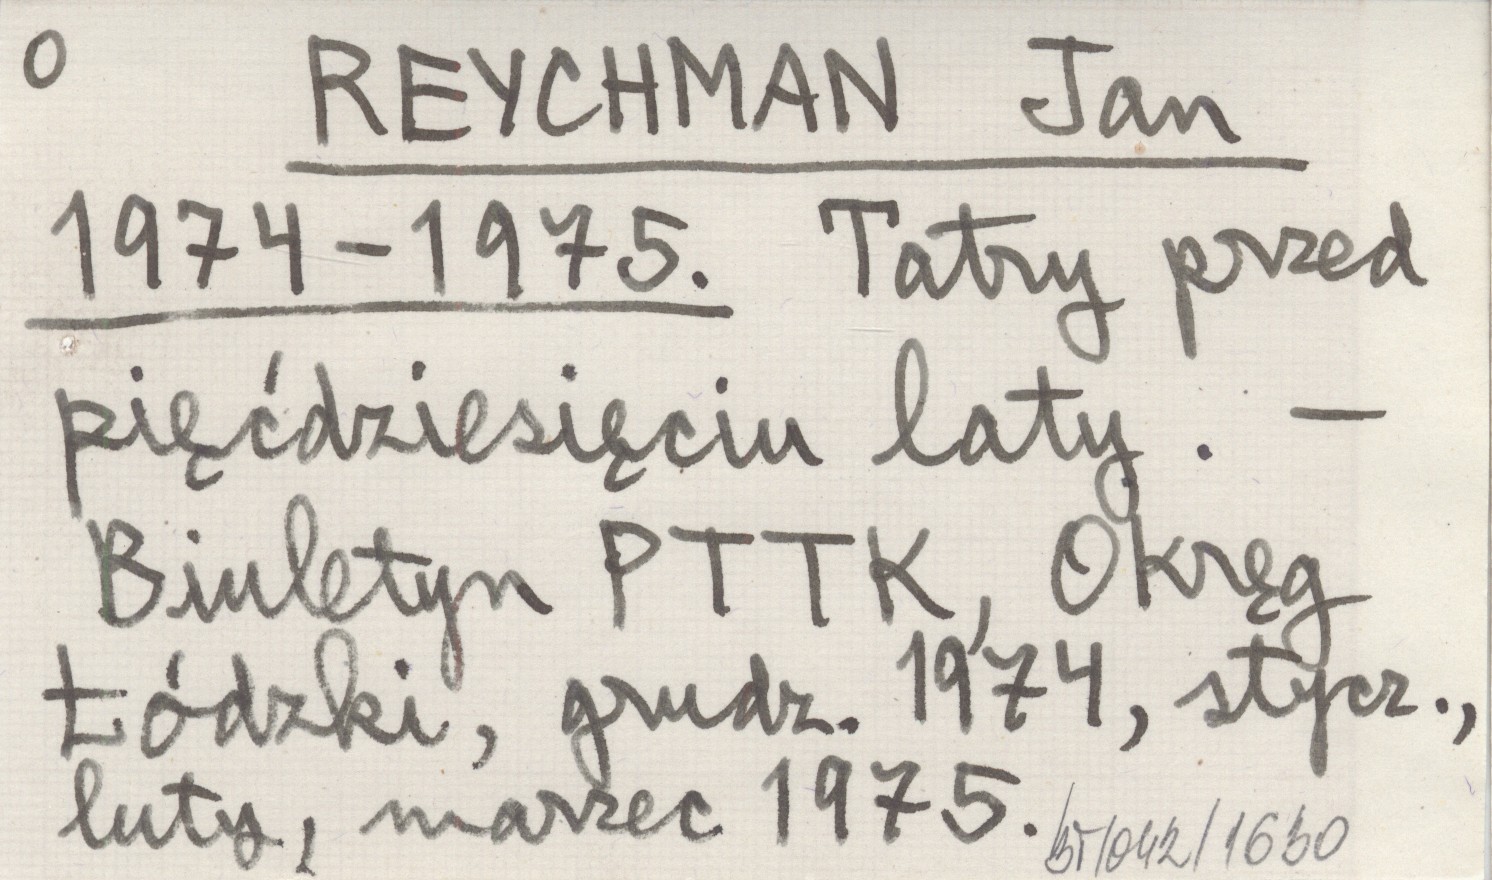 O REYCHMAN Jan
1974-1975. Tatry przed
pięćdziesięciu laty. -
Biuletyn PTTK, Okręg
Łódzki, grudz. 1974, stycz.,
luty, marzec 1975.